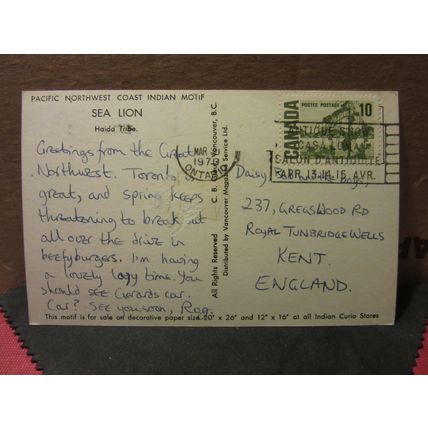 PACIFIC NORTHWEST COAST INDIAN MOTIF
SEA LION
Haida Tribe.
Greetings from the Great
Northwest. Toronto is
great, and spring keeps
threatening to break out
all over the drive in
beefyburgers. I'm having
a lovely lazy time. You
should see Gerards car.
Car? See you soon, Rog.
This motif is for sale on decorative paper size 20" x 26" and 12" x 16" at all Indian Curio Stores
All Rights Reserved
Vancouver, B.C.
Distributed by Vancouver Magazine Service Ltd.
MAR
197
ONTARIO
CANADA
POSTES POSTAGE
10
ANTIQUE SHOW
CASA LOMA
SALON D'ANTIQUITÉ
APR. 13-14-15 AVR.
Daisy, and the dogs,
237, GREGSWOOD RD
ROYAL TUNBRIDGE WELLS
KENT.
ENGLAND.